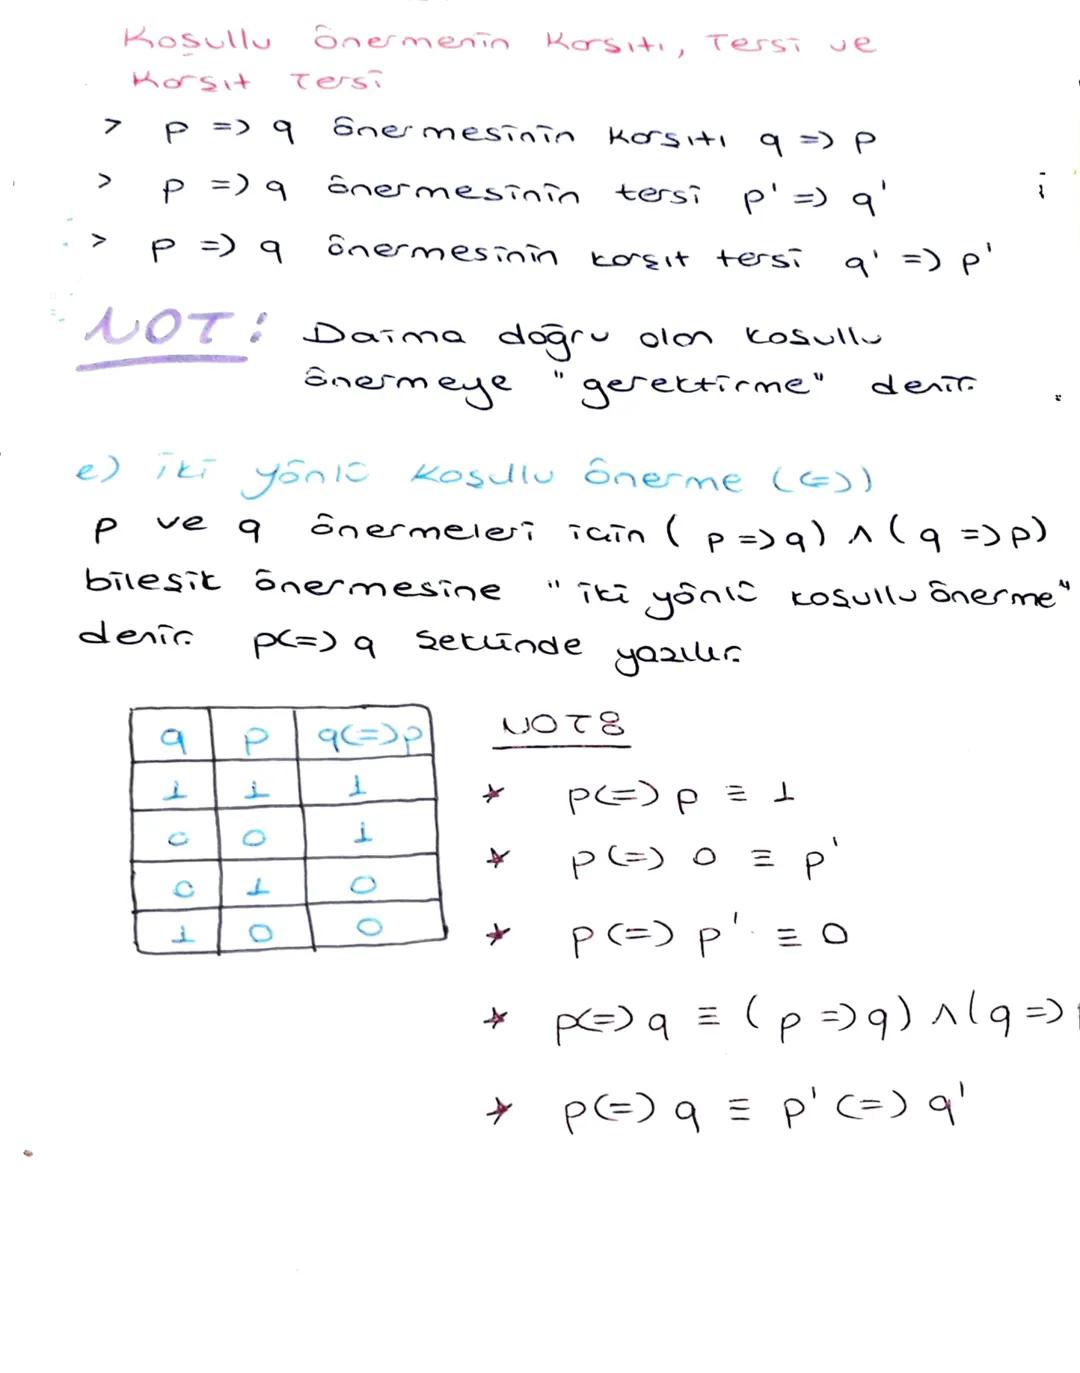 Koşullu önermenin Karşıtı, Tersi ve
Karşıt Tersi
> p => q önermesinin karşıtı q => p
> p => q önermesinin tersi p' => q'
> p => q önermesinin karşıt tersi q' => p'
NOT: Daima doğru olan koşullu
önermeye "gerektirme" denir.
e) iki yönlü Koşullu Önerme (<=>)
p ve q önermeleri için (p => q) ∧ (q => p)
bileşik önermesine "iki yönlü koşullu önerme"
denir. p<=> q şeklinde yazılır.
q p q<=>p
1 1 1
0 0 1
0 1 0
1 0 0
NOT:
* p<=> p ≡ 1
* p<=> 0 ≡ p'
* p<=> p' ≡ 0
* p<=> q ≡ (p => q) ∧ (q =>
* p<=> q ≡ p' <=> q'